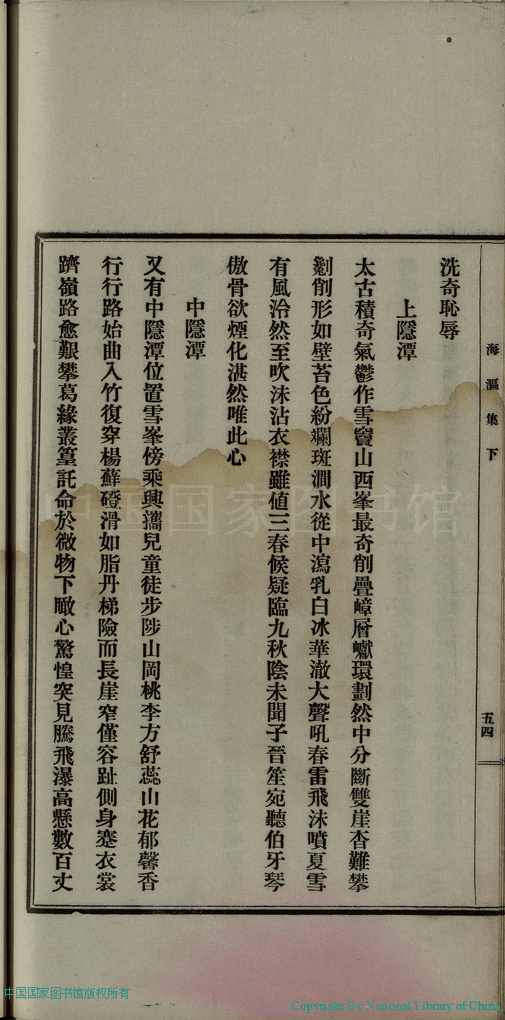 海漚集下
五四
洗奇恥辱
上隱潭
太古積奇氣鬱作雪竇山西峯最奇削疊嶂層巘環劃然中分斷雙崖杳難攀
劖削形如壁苔色紛斕斑澗水從中瀉乳白冰華澈大聲吼春雷飛沫噴夏雪
有風泠然至吹沫沾衣襟雖値三春候疑臨九秋陰未聞子晉笙宛聽伯牙琴
傲骨欲煙化湛然唯此心
中隱潭
又有中隱潭位置雪峯傍乘興攜兒童徒步陟山岡桃李方舒蕊山花郁馨香
行行路始曲入竹復穿楊蘚磴滑如脂丹梯險而長崖窄僅容趾側身蹇衣裳
躋嶺路愈艱攀葛緣叢篁託命於微物下瞰心驚惶突見騰飛瀑高懸數百丈
中国国家图书馆
中国国家图书馆版权所有
Copyright By National Library of China